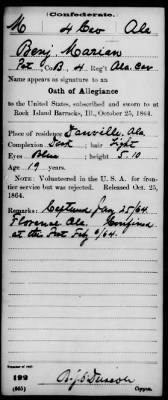 Confederate.
M 4 Cav Ala
Benj. Marian
Pvt. Co. B, 4 Reg't Ala. Cav
Name appears as signature to an
Oath of Allegiance
to the United States, subscribed and sworn to at
Rock Island Barracks, Ill., October 25, 1864.
Place of residence Danville, Ala.
Complexion Dark ; hair Light
Eyes Blue ; height 5.10
Age 19 years.
NOTE: Volunteered in the U. S. A. for fron-
tier service but was rejected. Released Oct. 25,
1864.
Remarks: Captured Jan 25/64
Florence Ala. Confined
at the Post Feby 9/64.
Number of roll:
199
(665) Copyist.